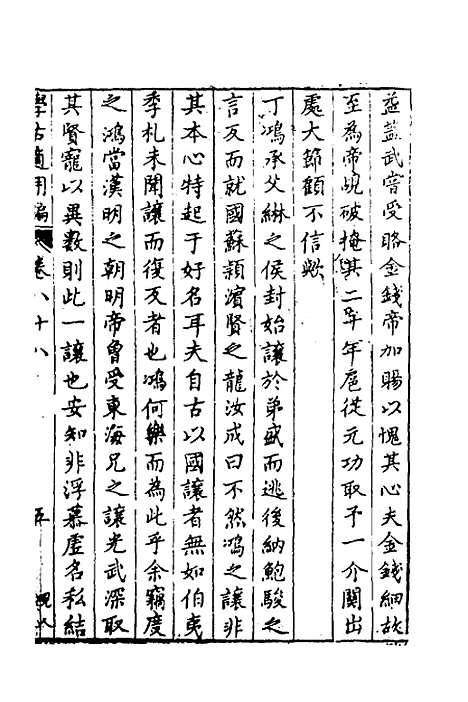 蓋武嘗受賂金錢帝加賜以愧其心夫金錢細故
至為帝覘破掩其二年扈從元功取予一介関出
處大節顧不信歟
丁鴻承父綝之侯封始讓於弟盛而逃後納鮑駿之
言反而就國蘇頴濱賢之龍汝成曰不然鴻之讓非
其本心特起于好名耳夫自古以國讓者無如伯夷
季札未聞讓而復反者也鴻何樂而為此乎余竊度
之鴻當漢明之朝明帝曾受東海兄之讓光武深取
其賢寵以異數則此一讓也安知非浮慕虛名私結
學古適用編
卷八十八